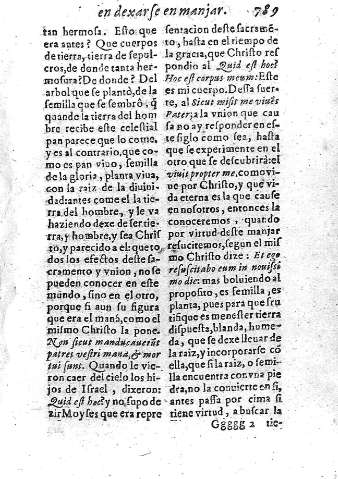 en dexarse en manjar. 789
tan hermosa. Esto que
era antes? Que cuerpos
de tierra, tierra de sepul-
cros, de donde tanta her-
mosura? De donde? Del
arbol que se plantò, de la
semilla que se sembrò, q̃
quando la tierra del hom
bre recibe este celestial
pan parece que lo come,
y es al contrario, que co-
mo es pan viuo, semilla
de la gloria, planta viua,
con la raiz de la diuini-
dad
antes come el la tie-
rra del hombre, y le va
haziendo dexe de ser tie-
rra, y hombre, y sea Chris
to, y parecido a el: que to
dos los efectos deste sa-
cramento y vnion, no se
pueden conocer en este
mundo, sino en el otro,
porque si aun su figura
que era el manà, como el
mismo Christo la pone.
Non sicut manducauerũt
patres vestri manà, & mor
tui sunt. Quando le vie-
ron caer del cielo los hi-
jos de Israel, dixeron:
Quid est hoc? y no supo de
zir Moyses que era repre
sentacion deste sacramẽ-
to, hasta en el tiempo de
la gracia, que Christo res
pondio al Quid est hoc?
Hoc est corpus meum: Este
es mi cuerpo. Dessa suer-
te, al Sicut misit me viuẽs
Pater; a la vnion que cau
sa no ay responder en es-
te siglo como sea, hasta
que se experimente en el
otro que se descubrirà: el
viuit propter me, como vi-
ue por Christo, y que vi-
da eterna es la que causa
en nosotros, entonces la
conoceremos, quando
por virtud deste manjar
resucitemos, segun el mis
mo Christo dize: Et ego
resuscitabo eum in nouissi
mo die: mas boluiendo al
proposito, es semilla, es
planta, pues para que fru
tifique es menester tierra
dispuesta, blanda, hume-
da, que se dexe lleuar de
la raiz, y incorporarse cõ
ella, que si la raiz, o semi-
lla encuentra con vna pie
dra, no la conuierte en si,
antes passa por cima si
tiene virtud, a buscar la
Ggggg 2 tie-